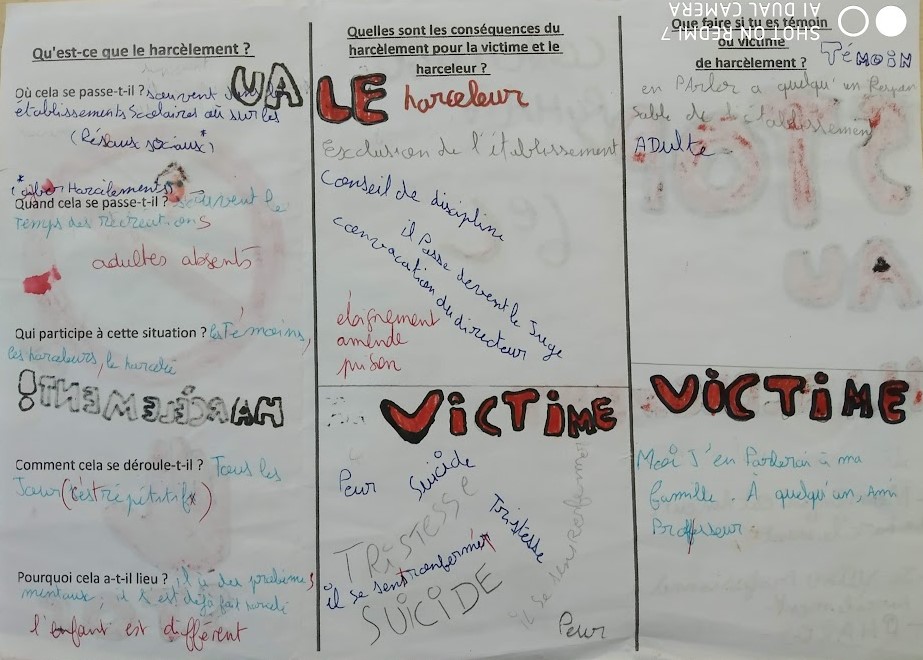 Qu'est-ce que le harcèlement ?
Où cela se passe-t-il ? souvent dans les
établissements Scolaires où sur les
(Réseaux sociaux*)
*(cyber Harcèlements)
Quand cela se passe-t-il ? souvent le
Temps des récréations
adultes absents
Qui participe à cette situation ? les Témoins,
les harceleurs, le harcelé
HARCÈLEMENT!
Comment cela se déroule-t-il ? Tous les
Jour (c'est répétitif)
Pourquoi cela a-t-il lieu ? il a des problèmes
mentaux, il s'est déjà fait harcelé
l'enfant est différent
AU
Quelles sont les conséquences du
harcèlement pour la victime et le
harceleur ?
LE harceleur
Exclusion de l'établissement
Conseil de discipline
il Passe devent le Juge
convocation du directeur
éloignement
amende
prison
VICTIME
Peur
Suicide
TRISTESSE
Tristesse
il se sent renfermer
SUICIDE
il se sens Renfermer
Peur
Que faire si tu es témoin
ou victime
de harcèlement ?
TÉMOIN
en Parler a quelqu'un Respon
sable de l'établissement
ADulte
STOP
AU
VICTIME
Moi J'en Parlerai à ma
famille. À quelqu'un, Ami
Professeur
SHOT ON REDMI 7
AI DUAL CAMERA